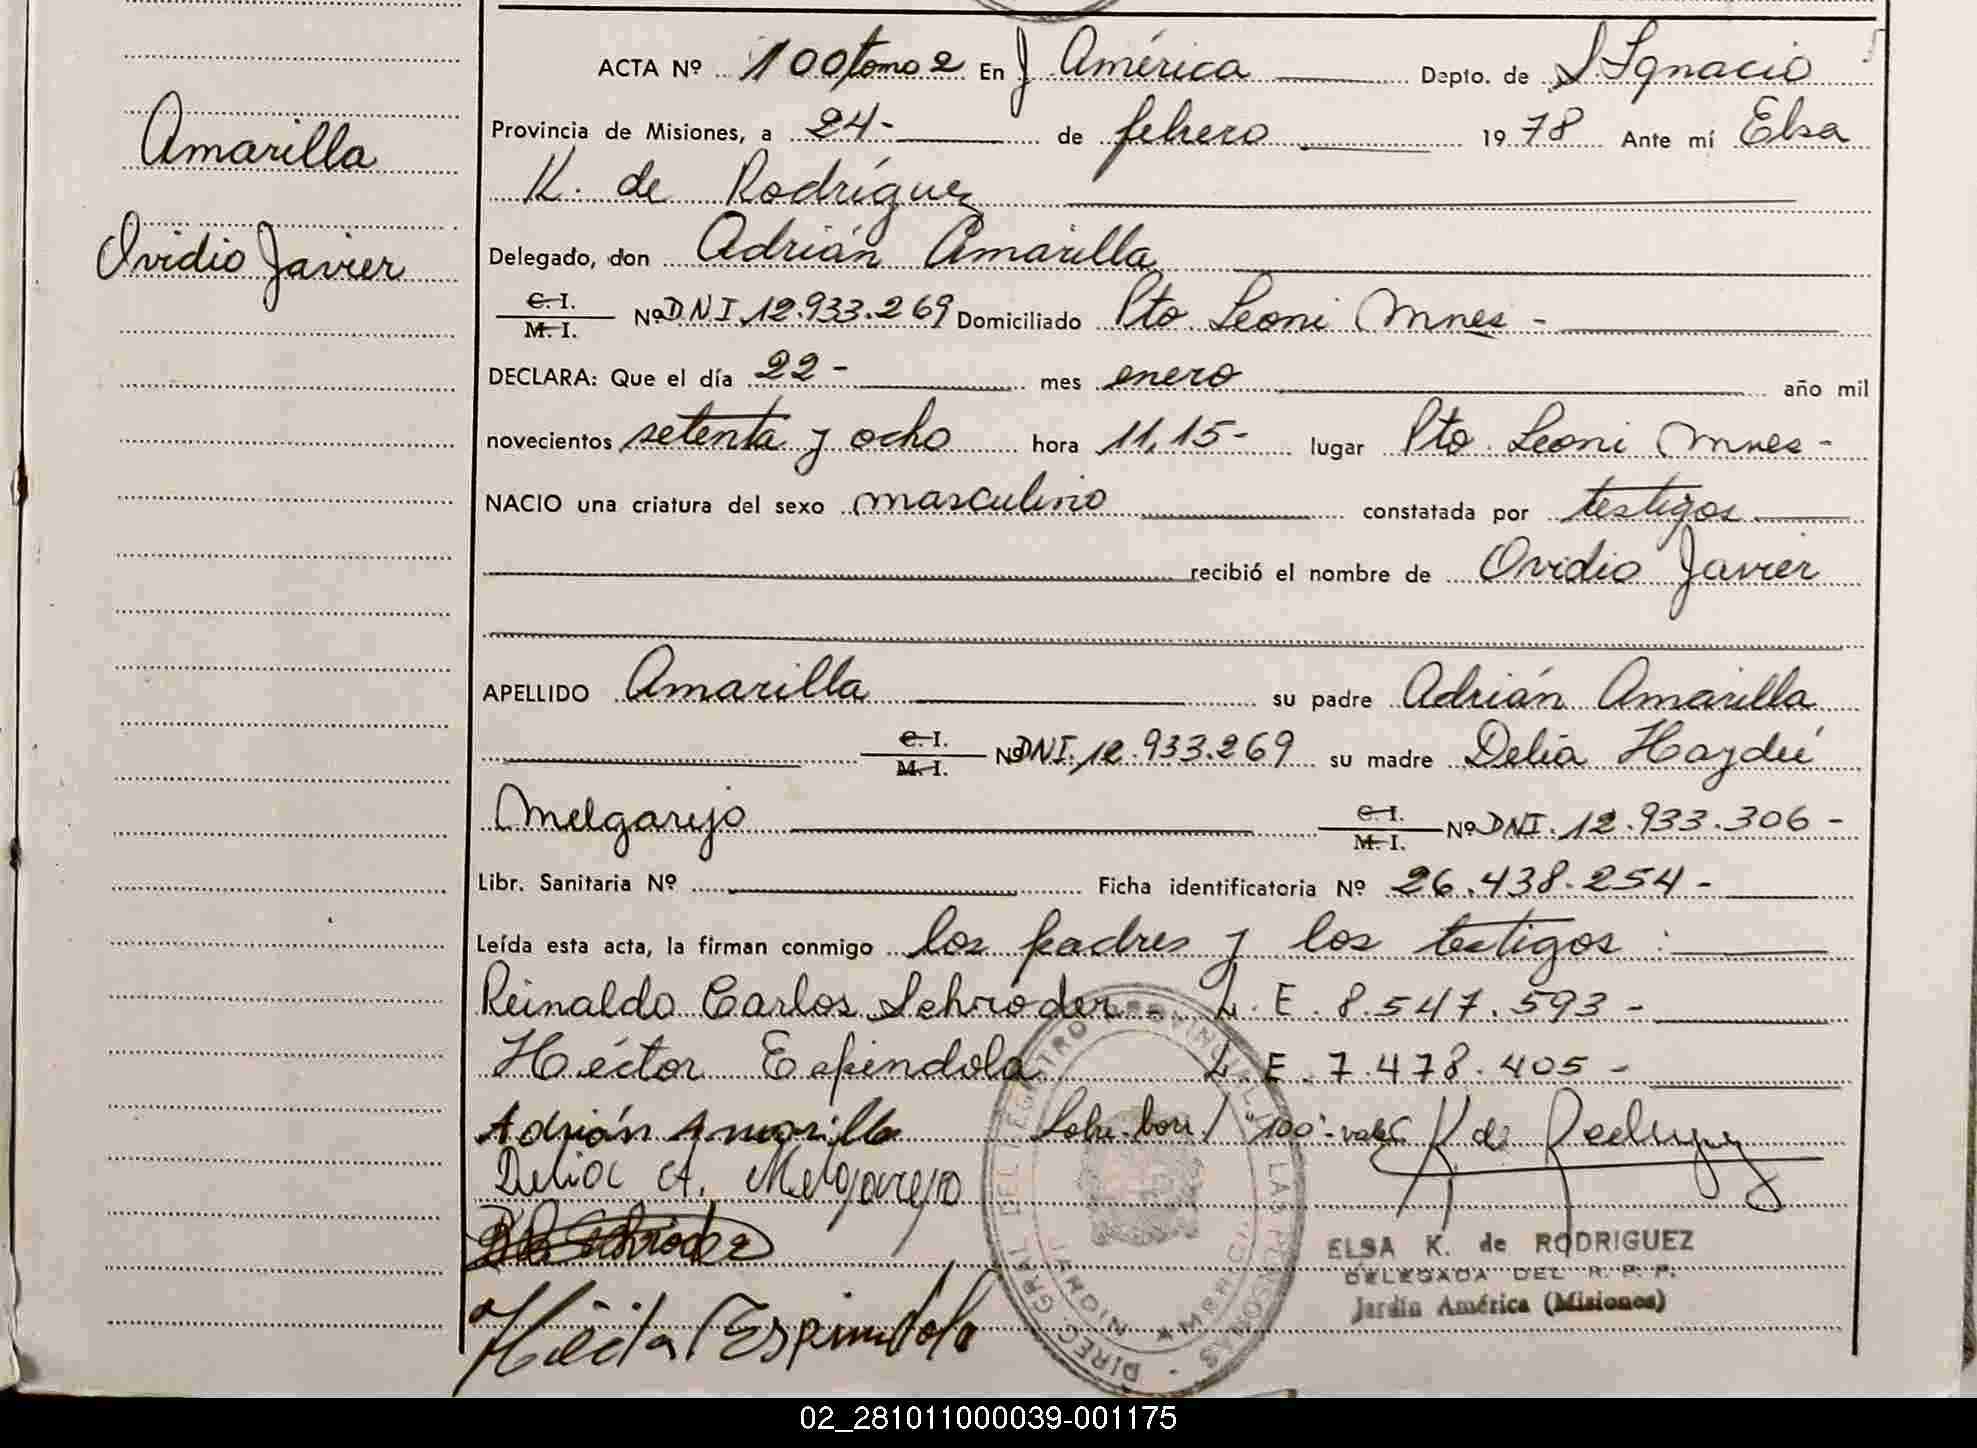 ACTA Nº 100 tomo 2 En J América Depto. de S Ignacio
Provincia de Misiones, a 24- de febrero 1978 Ante mí Elsa
K. de Rodríguez
Amarilla
Delegado, don Adrián Amarilla
Ovidio Javier
C. I. / M. I. Nº DNI. 12.933.269 Domiciliado Pto Leoni Mnes -
DECLARA: Que el día 22- mes enero año mil
novecientos setenta y ocho hora 11,15- lugar Pto. Leoni Mnes-
NACIO una criatura del sexo masculino constatada por testigos
recibió el nombre de Ovidio Javier
APELLIDO Amarilla su padre Adrián Amarilla
C. I. / M. I. Nº DNI. 12.933.269 su madre Delia Haydeé
Melgarejo C. I. / M. I. Nº DNI. 12.933.306 -
Libr. Sanitaria Nº Ficha identificatoria Nº 26.438.254-
Leída esta acta, la firman conmigo los padres y los testigos:
Reinaldo Carlos Schröder - L. E. 8.547.593 -
Héctor Espindola L. E. 7.478.405 -
Adrián Amarilla K de Rodriguez
Delia A. Melgarejo
Héctor Espindola
DIREC. GRAL. DEL REGISTRO PROVINCIAL DE LAS PERSONAS
ELSA K. de RODRIGUEZ
DELEGADA DEL R. P. P.
Jardín América (Misiones)
02_281011000039-001175